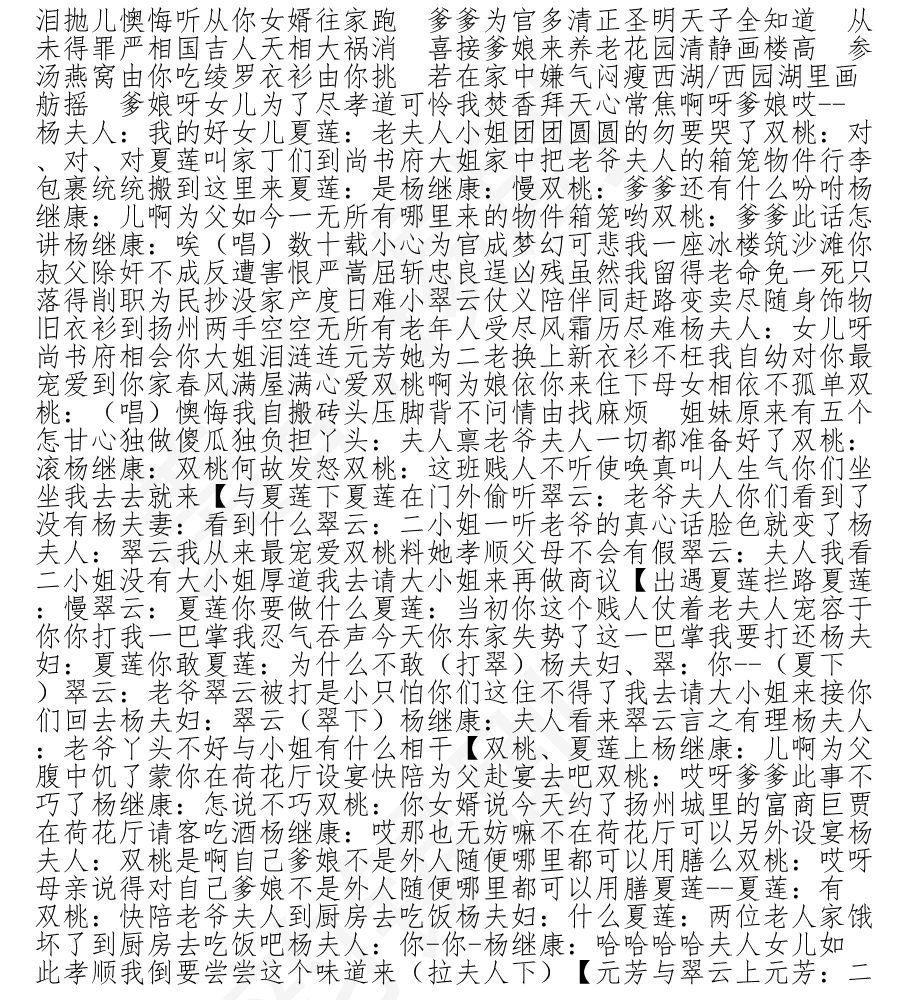 泪抛儿懊悔听从你女婿往家跑　爹爹为官多清正圣明天子全知道　从
未得罪严相国吉人天相大祸消　喜接爹娘来养老花园清静画楼高　参
汤燕窝由你吃绫罗衣衫由你挑　若在家中嫌气闷瘦西湖/西园湖里画
舫摇　爹娘呀女儿为了尽孝道可怜我焚香拜天心常焦啊呀爹娘哎--
杨夫人：我的好女儿夏莲：老夫人小姐团团圆圆的勿要哭了双桃：对
、对、对夏莲叫家丁们到尚书府大姐家中把老爷夫人的箱笼物件行李
包裹统统搬到这里来夏莲：是杨继康：慢双桃：爹爹还有什么吩咐杨
继康：儿啊为父如今一无所有哪里来的物件箱笼哟双桃：爹爹此话怎
讲杨继康：唉（唱）数十载小心为官成梦幻可悲我一座冰楼筑沙滩你
叔父除奸不成反遭害恨严嵩屈斩忠良逞凶残虽然我留得老命免一死只
落得削职为民抄没家产度日难小翠云仗义陪伴同赶路变卖尽随身饰物
旧衣衫到扬州两手空空无所有老年人受尽风霜历尽难杨夫人：女儿呀
尚书府相会你大姐泪涟连元芳她为二老换上新衣衫不枉我自幼对你最
宠爱到你家春风满屋满心爱双桃啊为娘依你来住下母女相依不孤单双
桃：（唱）懊悔我自搬砖头压脚背不问情由找麻烦　姐妹原来有五个
怎甘心独做傻瓜独负担丫头：夫人禀老爷夫人一切都准备好了双桃：
滚杨继康：双桃何故发怒双桃：这班贱人不听使唤真叫人生气你们坐
坐我去去就来【与夏莲下夏莲在门外偷听翠云：老爷夫人你们看到了
没有杨夫妻：看到什么翠云：二小姐一听老爷的真心话脸色就变了杨
夫人：翠云我从来最宠爱双桃料她孝顺父母不会有假翠云：夫人我看
二小姐没有大小姐厚道我去请大小姐来再做商议【出遇夏莲拦路夏莲
：慢翠云：夏莲你要做什么夏莲：当初你这个贱人仗着老夫人宠容于
你你打我一巴掌我忍气吞声今天你东家失势了这一巴掌我要打还杨夫
妇：夏莲你敢夏莲：为什么不敢（打翠）杨夫妇、翠：你--（夏下
）翠云：老爷翠云被打是小只怕你们这住不得了我去请大小姐来接你
们回去杨夫妇：翠云（翠下）杨继康：夫人看来翠云言之有理杨夫人
：老爷丫头不好与小姐有什么相干【双桃、夏莲上杨继康：儿啊为父
腹中饥了蒙你在荷花厅设宴快陪为父赴宴去吧双桃：哎呀爹爹此事不
巧了杨继康：怎说不巧双桃：你女婿说今天约了扬州城里的富商巨贾
在荷花厅请客吃酒杨继康：哎那也无妨嘛不在荷花厅可以另外设宴杨
夫人：双桃是啊自己爹娘不是外人随便哪里都可以用膳么双桃：哎呀
母亲说得对自己爹娘不是外人随便哪里都可以用膳夏莲--夏莲：有
双桃：快陪老爷夫人到厨房去吃饭杨夫妇：什么夏莲：两位老人家饿
坏了到厨房去吃饭吧杨夫人：你-你-杨继康：哈哈哈哈夫人女儿如
此孝顺我倒要尝尝这个味道来（拉夫人下）【元芳与翠云上元芳：二